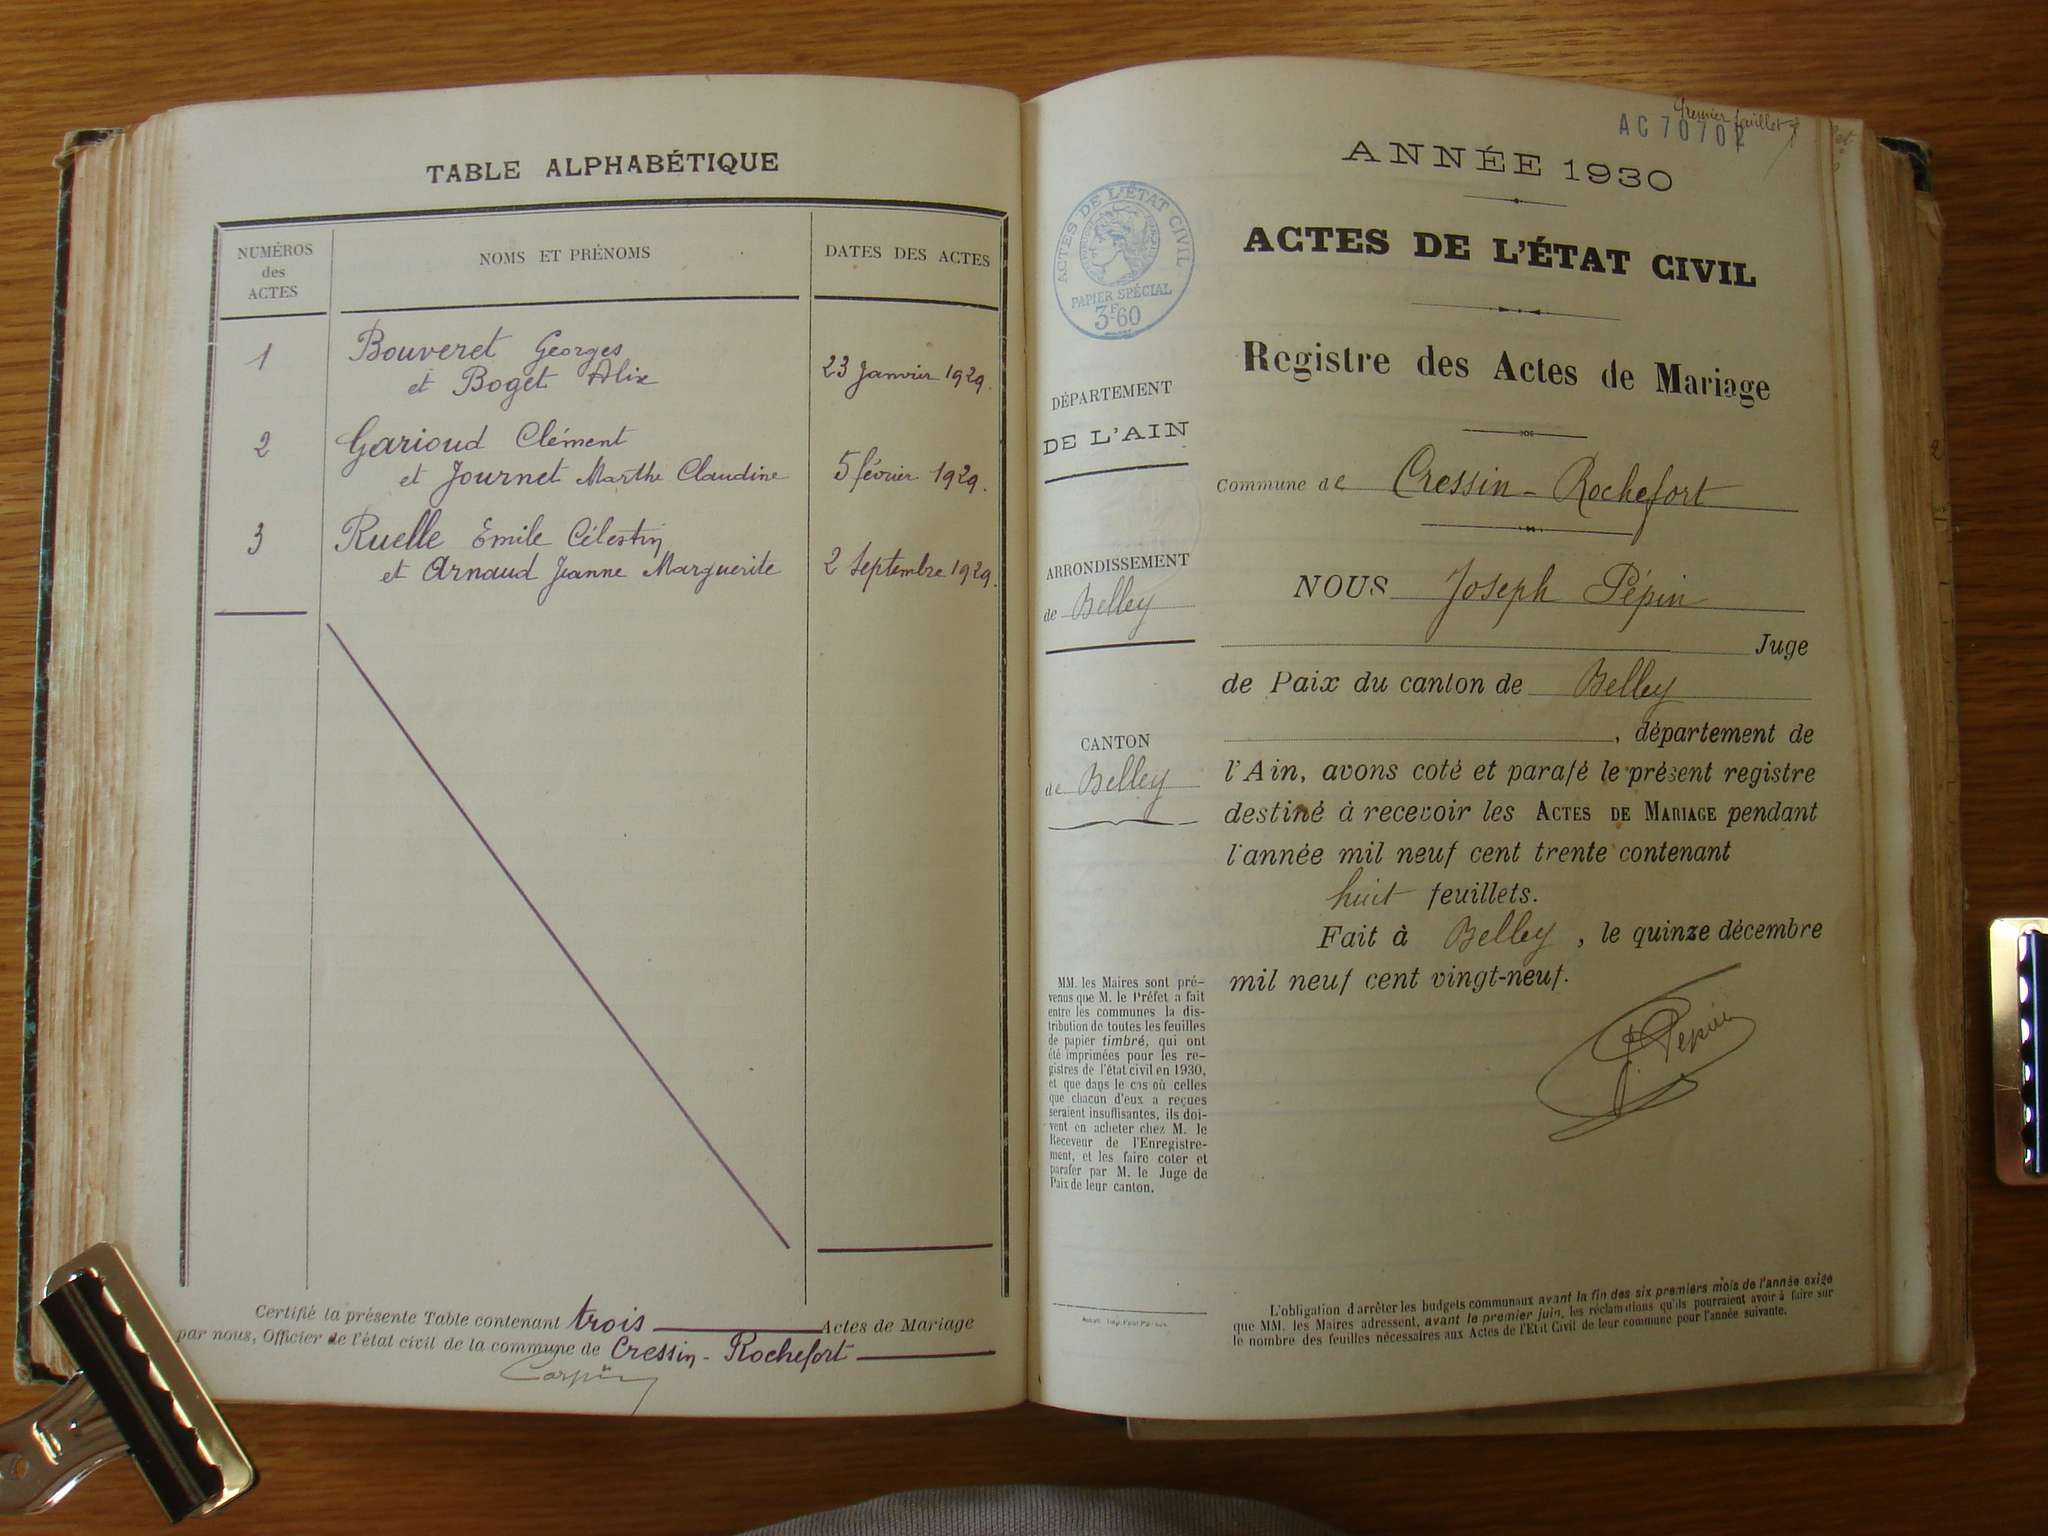 TABLE ALPHABÉTIQUE
NUMÉROS
des
ACTES
NOMS ET PRÉNOMS
DATES DES ACTES
1
Bouveret Georges
et Boget Alix
23 Janvier 1929.
2
Garioud Clément
et Journet Marthe Claudine
5 février 1929.
3
Ruelle Emile Célestin
et Arnaud Jeanne Marguerite
2 Septembre 1929.
Certifié la présente Table contenant trois Actes de Mariage
par nous, Officier de l'état civil de la commune de Cressin-Rochefort
Premier feuillet
AC 70702
ANNÉE 1930
ACTES DE L'ÉTAT CIVIL
Registre des Actes de Mariage
ACTES DE L'ÉTAT CIVIL
PAPIER SPÉCIAL
3F60
DÉPARTEMENT
DE L'AIN
ARRONDISSEMENT
de Belley
CANTON
de Belley
Commune de Cressin-Rochefort
NOUS Joseph Pépin
Juge
de Paix du canton de Belley
, département de
l'Ain, avons coté et parafé le présent registre
destiné à recevoir les ACTES DE MARIAGE pendant
l'année mil neuf cent trente contenant
huit feuillets.
Fait à Belley, le quinze décembre
mil neuf cent vingt-neuf.
Pépin
MM. les Maires sont pré-
venus que M. le Préfet a fait
entre les communes la dis-
tribution de toutes les feuilles
de papier timbré, qui ont
été imprimées pour les re-
gistres de l'état civil en 1930,
et que dans le cas où celles
que chacun d'eux a reçues
seraient insuffisantes, ils doi-
vent en acheter chez M. le
Receveur de l'Enregistre-
ment, et les faire coter et
parafer par M. le Juge de
Paix de leur canton.
L'obligation d'arrêter les budgets communaux avant la fin des six premiers mois de l'année exige
que MM. les Maires adressent, avant le premier juin, les réclamations qu'ils pourraient avoir à faire sur
le nombre des feuilles nécessaires aux Actes de l'Etat Civil de leur commune pour l'année suivante.